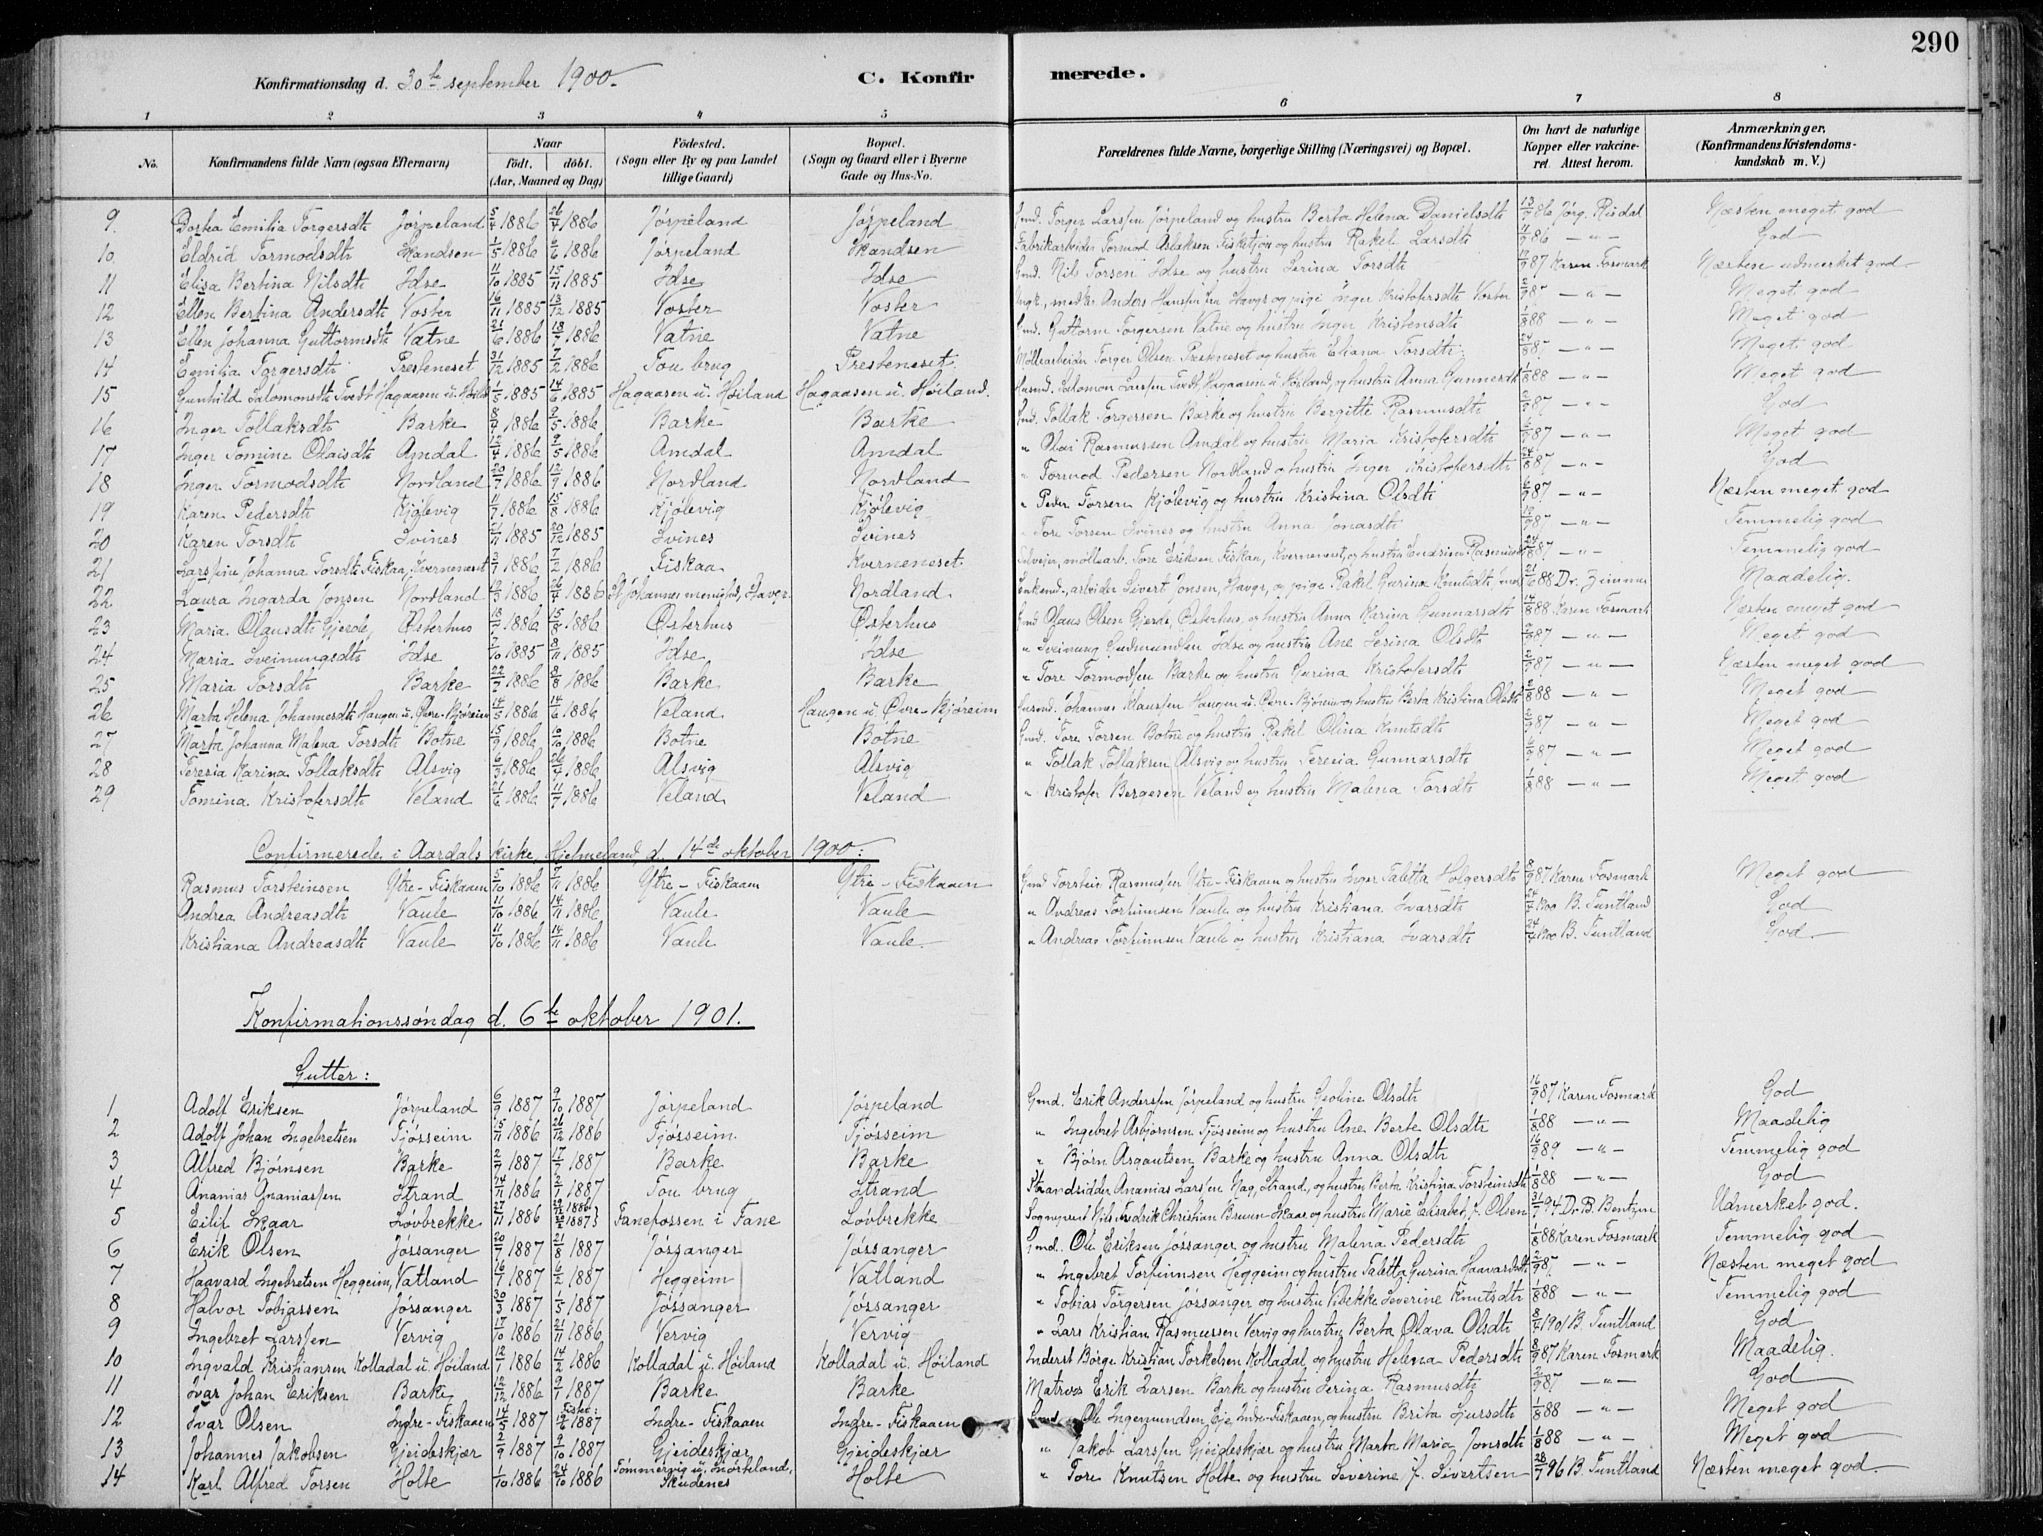 290
Konfirmationsdag d. 30te september 1900.
C. Konfirmerede.
1 2 3 4 5 6 7 8
No. Konfirmandens fulde Navn (ogsaa Efternavn) Naar født. døbt. (Aar, Maaned og Dag) Födested. (Sogn eller By og paa Landet tillige Gaard) Bopæl. (Sogn og Gaard eller i Byerne Gade og Hus-No. Forældrenes fulde Navne, borgerlige Stilling (Næringsvei) og Bopæl. Om havt de naturlige Kopper eller vakcineret. Attest herom. Anmærkninger. (Konfirmandens Kristendomskundskab m. V.)
9. Emilia Torgersdtr Jørpeland 5/4 1886 26/4 1886 Jørpeland Jørpeland Gmd. Torger Larssen Jørpeland og hustru Berta Helena Danielsdtr 86 Jørg. Risdal Næsten meget god
10 Eldrid Tormodsdtr Skandsen 1/5 1886 6/6 1886 Jørpeland Skandsen Fabrikarbeider Tormod Aslaksen Fisketjøn og hustru Rakel Larsdtr 86 — " — God
11 Elisa Bertina Nilsdtr Idse 11/10 1885 15/11 1885 Idse Idse Gmd. Nils Torsen Idse og hustru Serina Torsdtr 87 Karen Fosmark Næsten udmerket god
12 Ellen Bertina Andersdtr Voster 16/11 1885 13/12 1885 Voster Voster Ungk. Anders Hanssen fra Havgr og pige Inger Kristofersdtr Voster 87 — " — Meget god
13 Ellen Johanna Guttormsdtr Vatne 21/6 1886 18/7 1886 Vatne Vatne Gmd. Guttorm Torgersen Vatne og hustru Inger Kristensdtr 1/8 88 — " — Meget god
14 Emilia Torgersdtr Presteneset 31/12 1885 7/2 1886 Tou brug Presteneset Møllearbeider Torger Olsen Presteneset og hustru Eliana Torsdtr 24/8 87 — " — Meget god
15 Gunhild Salomonsdtr Tvedt Hagaasen u. Høiland 1/5 1885 14/6 1885 Hagaasen u. Høiland Hagaasen u. Høiland. Husmd. Salomon Larssen Tvedt Hagaasen u. Høiland, og hustru Anna Gunnersdtr 1/8 88 — " — Meget god
16 Inger Tollaksdtr Barke 8/4 1886 9/5 1886 Barke Barke Gmd. Tollak Torgersen Barke og hustru Bergitte Rasmusdtr 2/9 87 — " — God
17 Inger Tomine Olaisdtr Amdal 12/4 1886 9/5 1886 Amdal Amdal " Olai Rasmussen Amdal og hustru Maria Kristofersdtr 6/9 87 — " — Meget god
18 Inger Tormodsdtr Nordland 20/7 1886 12/9 1886 Nordland Nordland " Tormod Pedersen Nordland og hustru Inger Kristofersdtr 24/8 87 — " — God
19 Karen Pedersdtr Kjølevig 11/7 1886 15/8 1886 Kjølevig Kjølevig " Peder Torsen Kjølevig og hustru Kristina Olsdtr 6/9 87 — " — Næsten meget god
20 Karen Torsdtr Svines 21/11 1885 20/12 1885 Svines Svines " Tore Torsen Svines og hustru Anna Jonasdtr 87 — " — Temmelig god
21 Larssine Johanna Torsdtr Fiskaa, Kverneneset 3/1 1886 7/2 1886 Fiskaa Kverneneset Selveier, møllearb. Tore Eriksen Fiskaa, Kverneneset, og hustru Endrine Rasmusdtr 24/8 87 — " — Temmelig god
22 Laura Ingarda Jonsen Nordland 12/3 1886 26/4 1886 St Johannes menighed, Havgr. Nordland Enkemd., arbeider Sivert Jonsen, Havgr, og pige Rakel Gurina Knutsdtr 21/6 88 Dr. Zimmer Maadelig.
23 Maria Olausdtr Gjerde, Østerhus 18/7 1886 15/8 1886 Østerhus Østerhus Gmd. Olaus Olsen Gjerde, Østerhus, og hustru Anna Karina Gunnarsdtr 14/8 88 Karen Fosmark Næsten meget god
24 Maria Sveinungsdtr Idse 7/10 1885 8/11 1885 Idse Idse " Sveinung Gudmundsen Idse og hustru Ane Serina Olsdtr 87 — " — Meget god
25 Maria Torsdtr Barke 22/7 1886 8/8 1886 Barke Barke " Tore Tormodsen Barke og hustru Gurina Kristofersdtr 2/9 87 — " — Næsten meget god
26 Marta Helena Johannesdtr Haugen u. Øvre-Bjøreim 14/5 1886 14/6 1886 Veland Haugen u. Øvre-Bjøreim Husmd. Johannes Klaussen Haugen u. Øvre-Bjøreim og hustru Berta Kristina Olsdtr 2/8 88 — " — Meget god
27 Marta Johanna Malena Torsdtr Botne 15/9 1886 10/10 1886 Botne Botne Gmd. Tore Torsen Botne og hustru Rakel Olina Knutsdtr 2/9 87 — " — Meget god
28 Teresia Karina Tollaksdtr Alsvig 6/3 1886 26/4 1886 Alsvig Alsvig " Tollak Tollaksen Alsvig og hustru Teresia Gunnarsdtr 6/9 87 — " — Meget god
29 Tomina Kristofersdtr Veland 21/6 1886 11/7 1886 Veland Veland " Kristofer Bergesen Veland og hustru Malena Torsdtr 1/8 88 — " — Meget god
Confirmerede i Aardals kirke, Hjelmeland d. 14de oktober 1900:
Rasmus Torsteinsen Ytre-Fiskaaen 5/10 1886 7/11 1886 Ytre-Fiskaaen Ytre-Fiskaaen Gmd Torstein Rasmussen Ytre-Fiskaaen og hustru Inger Taletta Holgersdtr 8/9 87 Karen Fosmark Meget god
Andrea Andreasdtr Vaule 11/10 1886 14/11 1886 Vaule Vaule " Andreas Torfinnsen Vaule og hustru Kristiana Ivarsdtr 24/4 1900 B. Tuntland God
Kristiana Andreasdtr Vaule 11/10 1886 14/11 1886 Vaule Vaule " Andreas Torfinnsen Vaule og hustru Kristiana Ivarsdtr 24/4 1900 B. Tuntland God
Konfirmationssøndag d. 6te oktober 1901.
Gutter:
1 Adolf Eriksen Jørpeland 6/9 1887 9/10 1887 Jørpeland Jørpeland Gmd. Erik Anderssen Jørpeland og hustru Geoline Olsdtr 16/9 87 Karen Fosmark God
2 Adolf Johan Ingebretsen Tjøsseim 15/11 1886 26/12 1886 Tjøsseim Tjøsseim " Ingebret Asbjørnsen Tjøsseim og hustru Ane Berte Olsdtr 1/8 88 — " — Maadelig
3 Alfred Bjørnsen Barke 2/7 1887 17/7 1887 Barke Barke " Bjørn Asgautsen Barke og hustru Anna Olsdtr 16/9 89 — " — Temmelig god
4 Ananias Ananiassen Strand 24/11 1886 2/1 1887 Tou brug Strand Strandsidder Ananias Larssen Nag, Strand, og hustru Berta Kristina Torsteinsdtr 1/8 88 — " — God
5 Eilif Skaar Løvbrekke 27/11 1886 29/12 1886 20/2 1887 Fanefossen i Fane Løvbrekke Sogneprest Nils Fredrik Christian Bruun Skaar og hustru Marie Elisabet f. Olsen 31/7 94 Dr. B. Bentzen Udmerket god.
6 Erik Olsen Jøssanger 20/7 1887 21/8 1887 Jøssanger Jøssanger Gmd. Ole Eriksen Jøssanger og hustru Malena Pedersdtr 1/8 88 Karen Fosmark Temmelig god
7 Haavard Ingebretsen Heggeim, Vatland 16/1 1887 6/2 1887 Heggeim Vatland " Ingebret Torfinnsen Heggeim og hustru Taletta Gurina Haavardsdtr 2/9 87 — " — Næsten meget god
8 Halvor Tobiassen Jøssanger 30/3 1887 1/5 1887 Jøssanger Jøssanger " Tobias Torgersen Jøssanger og hustru Vibekke Severine Knutsdtr 1/8 88 — " — Temmelig god
9 Ingebret Larssen Vervig 17/10 1886 21/11 1886 Vervig Vervig " Lars Kristian Rasmussen Vervig og hustru Berta Olava Olsdtr 8/4 1901 B. Tuntland God
10 Ingvald Kristiansen Kolladal u. Høiland 12/1 1886 14/2 1886 Kolladal u. Høiland Kolladal u. Høiland Inderst Børge Kristian Torkelsen Kolladal og hustru Helena Pedersdtr 8/9 87 Karen Fosmark Maadelig.
11 Ivar Johan Eriksen Barke 12/12 1886 9/1 1887 Barke Barke Matros Erik Larsen Barke og hustru Serina Rasmusdtr 2/9 87 — " — God
12 Ivar Olsen Indre-Fiskaaen 14/5 1887 Fister: 19/6 1887 Indre-Fiskaaen Indre-Fiskaaen Gmd. Ole Ingemundsen Eje Indre-Fiskaaen, og hustru Brita Sjursdtr 1/8 88 — " — Meget god
13 Johannes Jakobsen Gjeideskjær 2/9 1887 9/10 1887 Gjeideskjær Gjeideskjær " Jakob Larssen Gjeideskjær og hustru Marta Maria Jonsdtr 1/8 88 — " — Meget god
14 Karl Alfred Torsen Holte 1/10 1886 24/10 1886 Tømmervig u. Snørteland, Skudenes Holte " Tore Knutsen Holte og hustru Severine f. Sivertsen 28/7 96 B. Tuntland Næsten meget god.